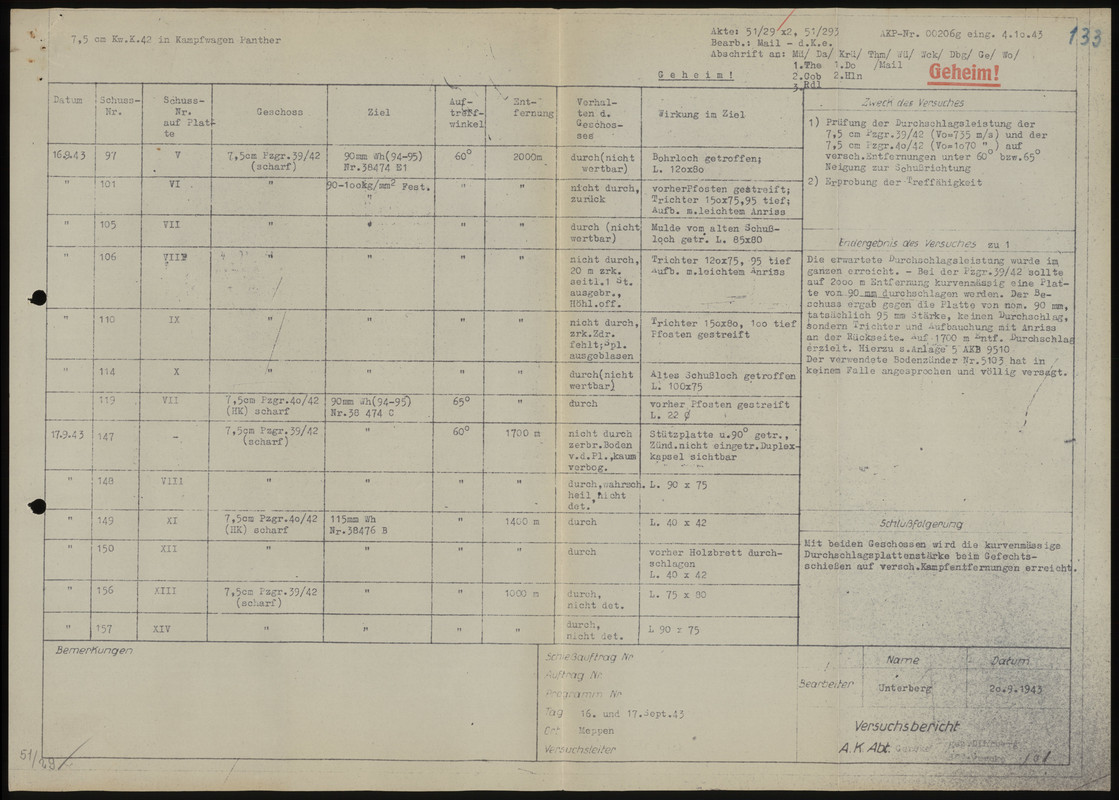 7,5 cm Kw.K.42 in Kampfwagen Panther
Akte: 51/29 x2, 51/293
AKP-Nr. 00206g eing. 4.10.43
133
Bearb.: Mail - d.K.e.
Abschrift an: Mü/ Da/ Krü/ Thm/ Wü/ Wck/ Dbg/ Ge/ Wo/
1.The 1.Do /Mail
2.Gob 2.Hln
3.Rdl
Geheim!
Geheim!
Datum
Schuss-Nr.
Schuss-Nr. auf Platte
Geschoss
Ziel
Auf-treff-winkel
Ent-fernung
Verhal-ten d. Geschos-ses
Wirkung im Ziel
16.9.43 97 V 7,5cm Pzgr.39/42 90mm Wh(94-95) 60° 2000m durch(nicht Bohrloch getroffen;
(scharf) Nr.38474 E1 wertbar) L. 120x80
" 101 VI " 90-100kg/mm² Fest. " " nicht durch, vorherPfosten gestreift;
" zurück Trichter 150x75,95 tief;
Aufb. m.leichtem Anriss
" 105 VII " " " " durch (nicht Mulde vom alten Schuß-
wertbar) loch getr. L. 85x80
" 106 VIII " " " " nicht durch, Trichter 120x75, 95 tief
20 m zrk. Aufb. m.leichtem Anriss
seitl.1 St.
ausgebr.,
Höhl.off.
" 110 IX " " " " nicht durch, Trichter 150x80, 100 tief
zrk.Zdr. Pfosten gestreift
fehlt;Spl.
ausgeblasen
" 114 X " " " " durch(nicht Altes Schußloch getroffen
wertbar) L. 100x75
119 VII 7,5cm Pzgr.40/42 90mm Wh(94-95) 65° " durch vorher Pfosten gestreift
(HK) scharf Nr.38 474 C L. 22 ∅
17.9.43 147 -. 7,5cm Pzgr.39/42 " 60° 1700 m nicht durch Stützplatte u.90° getr.,
(scharf) zerbr.Boden Zünd.nicht eingetr.Duplex-
v.d.Pl.,kaum kapsel sichtbar
verbog.
" 148 VIII " " " " durch,wahrsch. L. 90 x 75
heil,nicht
det.
" 149 XI 7,5cm Pzgr.40/42 115mm Wh " 1400 m durch L. 40 x 42
(HK) scharf Nr.38476 B
" 150 XII " " " " durch vorher Holzbrett durch-
schlagen
L. 40 x 42
" 156 XIII 7,5cm Pzgr.39/42 " " 1000 m durch, L. 75 x 80
(scharf) nicht det.
" 157 XIV " " " " durch, L 90 x 75
nicht det.
Zweck des Versuches
1) Prüfung der Durchschlagsleistung der
7,5 cm Pzgr.39/42 (Vo=735 m/s) und der
7,5 cm Pzgr.40/42 (Vo=1070 " ) auf
versch.Entfernungen unter 60° bzw.65°
Neigung zur Schußrichtung
2) Erprobung der Treffähigkeit
Endergebnis des Versuches zu 1
Die erwartete Durchschlagsleistung wurde im
ganzen erreicht. - Bei der Pzgr.39/42 sollte
auf 2000 m Entfernung kurvenmässig eine Plat-
te von 90 mm durchschlagen werden. Der Be-
schuss ergab gegen die Platte von nom. 90 mm,
tatsächlich 95 mm Stärke, keinen Durchschlag,
sondern Trichter und Aufbauchung mit Anriss
an der Rückseite. Auf 1700 m Entf. Durchschlag
erzielt. Hierzu s.Anlage 5 AKB 9510
Der verwendete Bodenzünder Nr.5103 hat in
keinem Falle angesprochen und völlig versagt.
Schlußfolgerung
Mit beiden Geschossen wird die kurvenmässige
Durchschlagsplattenstärke beim Gefechts-
schießen auf versch.Kampfentfernungen erreicht.
Bemerkungen
Schießauftrag Nr
Auftrag Nr.
Programm Nr
Tag 16. und 17.Sept.43
Ort Meppen
Versuchsleiter
Name
Datum
Bearbeiter
Unterberg
20.9.1943
Versuchsbericht
A.K Abt.
51/29